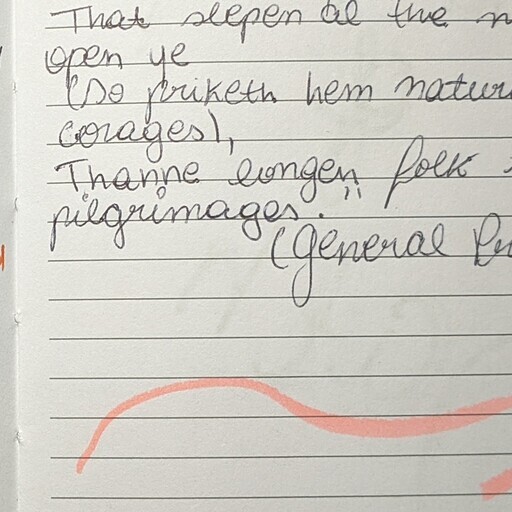 That slepen al the n
open ye
(So priketh hem natur
corages),
Thanne longen folk
pilgrimages."
(General Pr